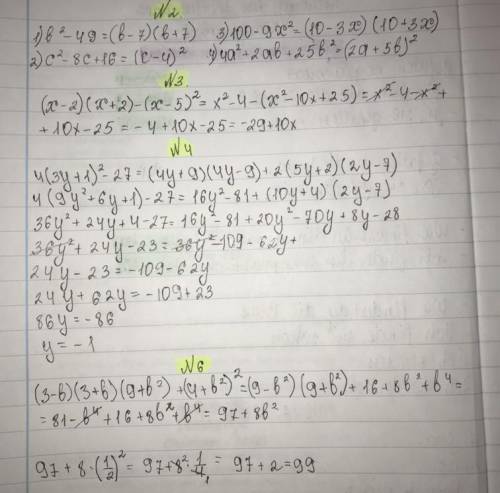 №2
1) b² - 49 = (b-7)(b+7) 3) 100 - 9x² = (10 - 3x)(10+3x)
2) c² - 8c + 16 = (c - 4)² 4) 4a² + 2ab + 25b² = (2a + 5b)²
№3.
(x-2)(x+2) - (x-5)² = x² - 4 - (x² - 10x + 25) = x² - 4 - x² +
+ 10x - 25 = - 4 + 10x - 25 = -29 + 10x
№4
4(3y+1)² - 27 = (4y+9)(4y-9) + 2(5y+2)(2y-7)
4(9y² + 6y + 1) - 27 = 16y² - 81 + (10y+4)(2y-7)
36y² + 24y + 4 - 27 = 16y² - 81 + 20y² - 70y + 8y - 28
36y² + 24y - 23 = 36y² - 109 - 62y
24y - 23 = -109 - 62y
24y + 62y = -109 + 23
86y = -86
y = -1
№6
(3-b)(3+b)(9+b²) + (4+b²)² = (9-b²)(9+b²) + 16 + 8b² + b⁴ =
= 81 - b⁴ + 16 + 8b² + b⁴ = 97 + 8b²
97 + 8·(1/2)² = 97 + 8²·1/4 = 97 + 2 = 99